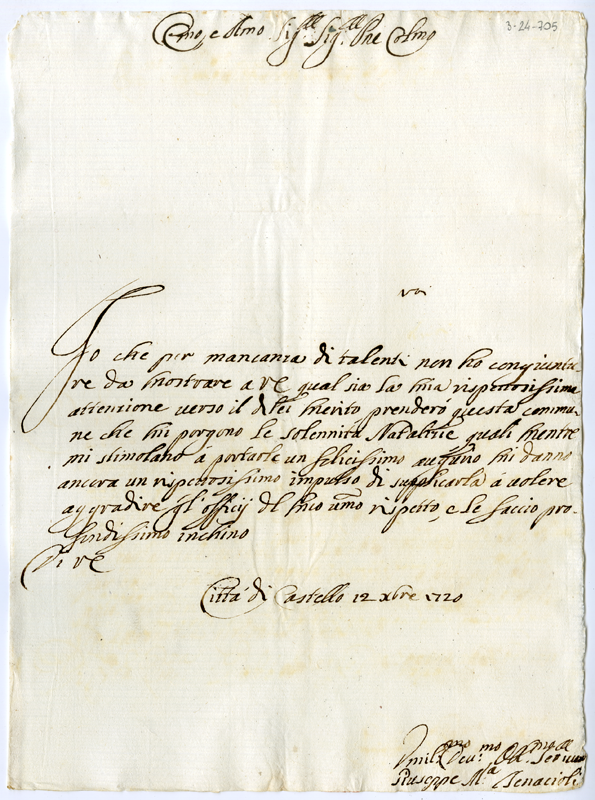 3-24-705
Emo, e Rmo Sig.re Sig.re Pne Colmo
Io che per mancanza di talenti non ho congiuntu
re da mostrare a VE qual sia la mia rispettosissima
attenzione verso il di lei merito prenderò questa commu-
ne che mi porgono le solennità Natalitie quali mentre
mi stimolano a portarle un felicissimo augurio mi danno
ancora un rispettosissimo impulso di supplicarla a volere
aggradire gl'officij del mio umo rispetto, e le faccio pro-
fondissimo inchino
Di VE
Città di Castello 12 xbre 1720
Umil.mo Dev.mo Obl.mo
Giuseppe M.a Tenacioli